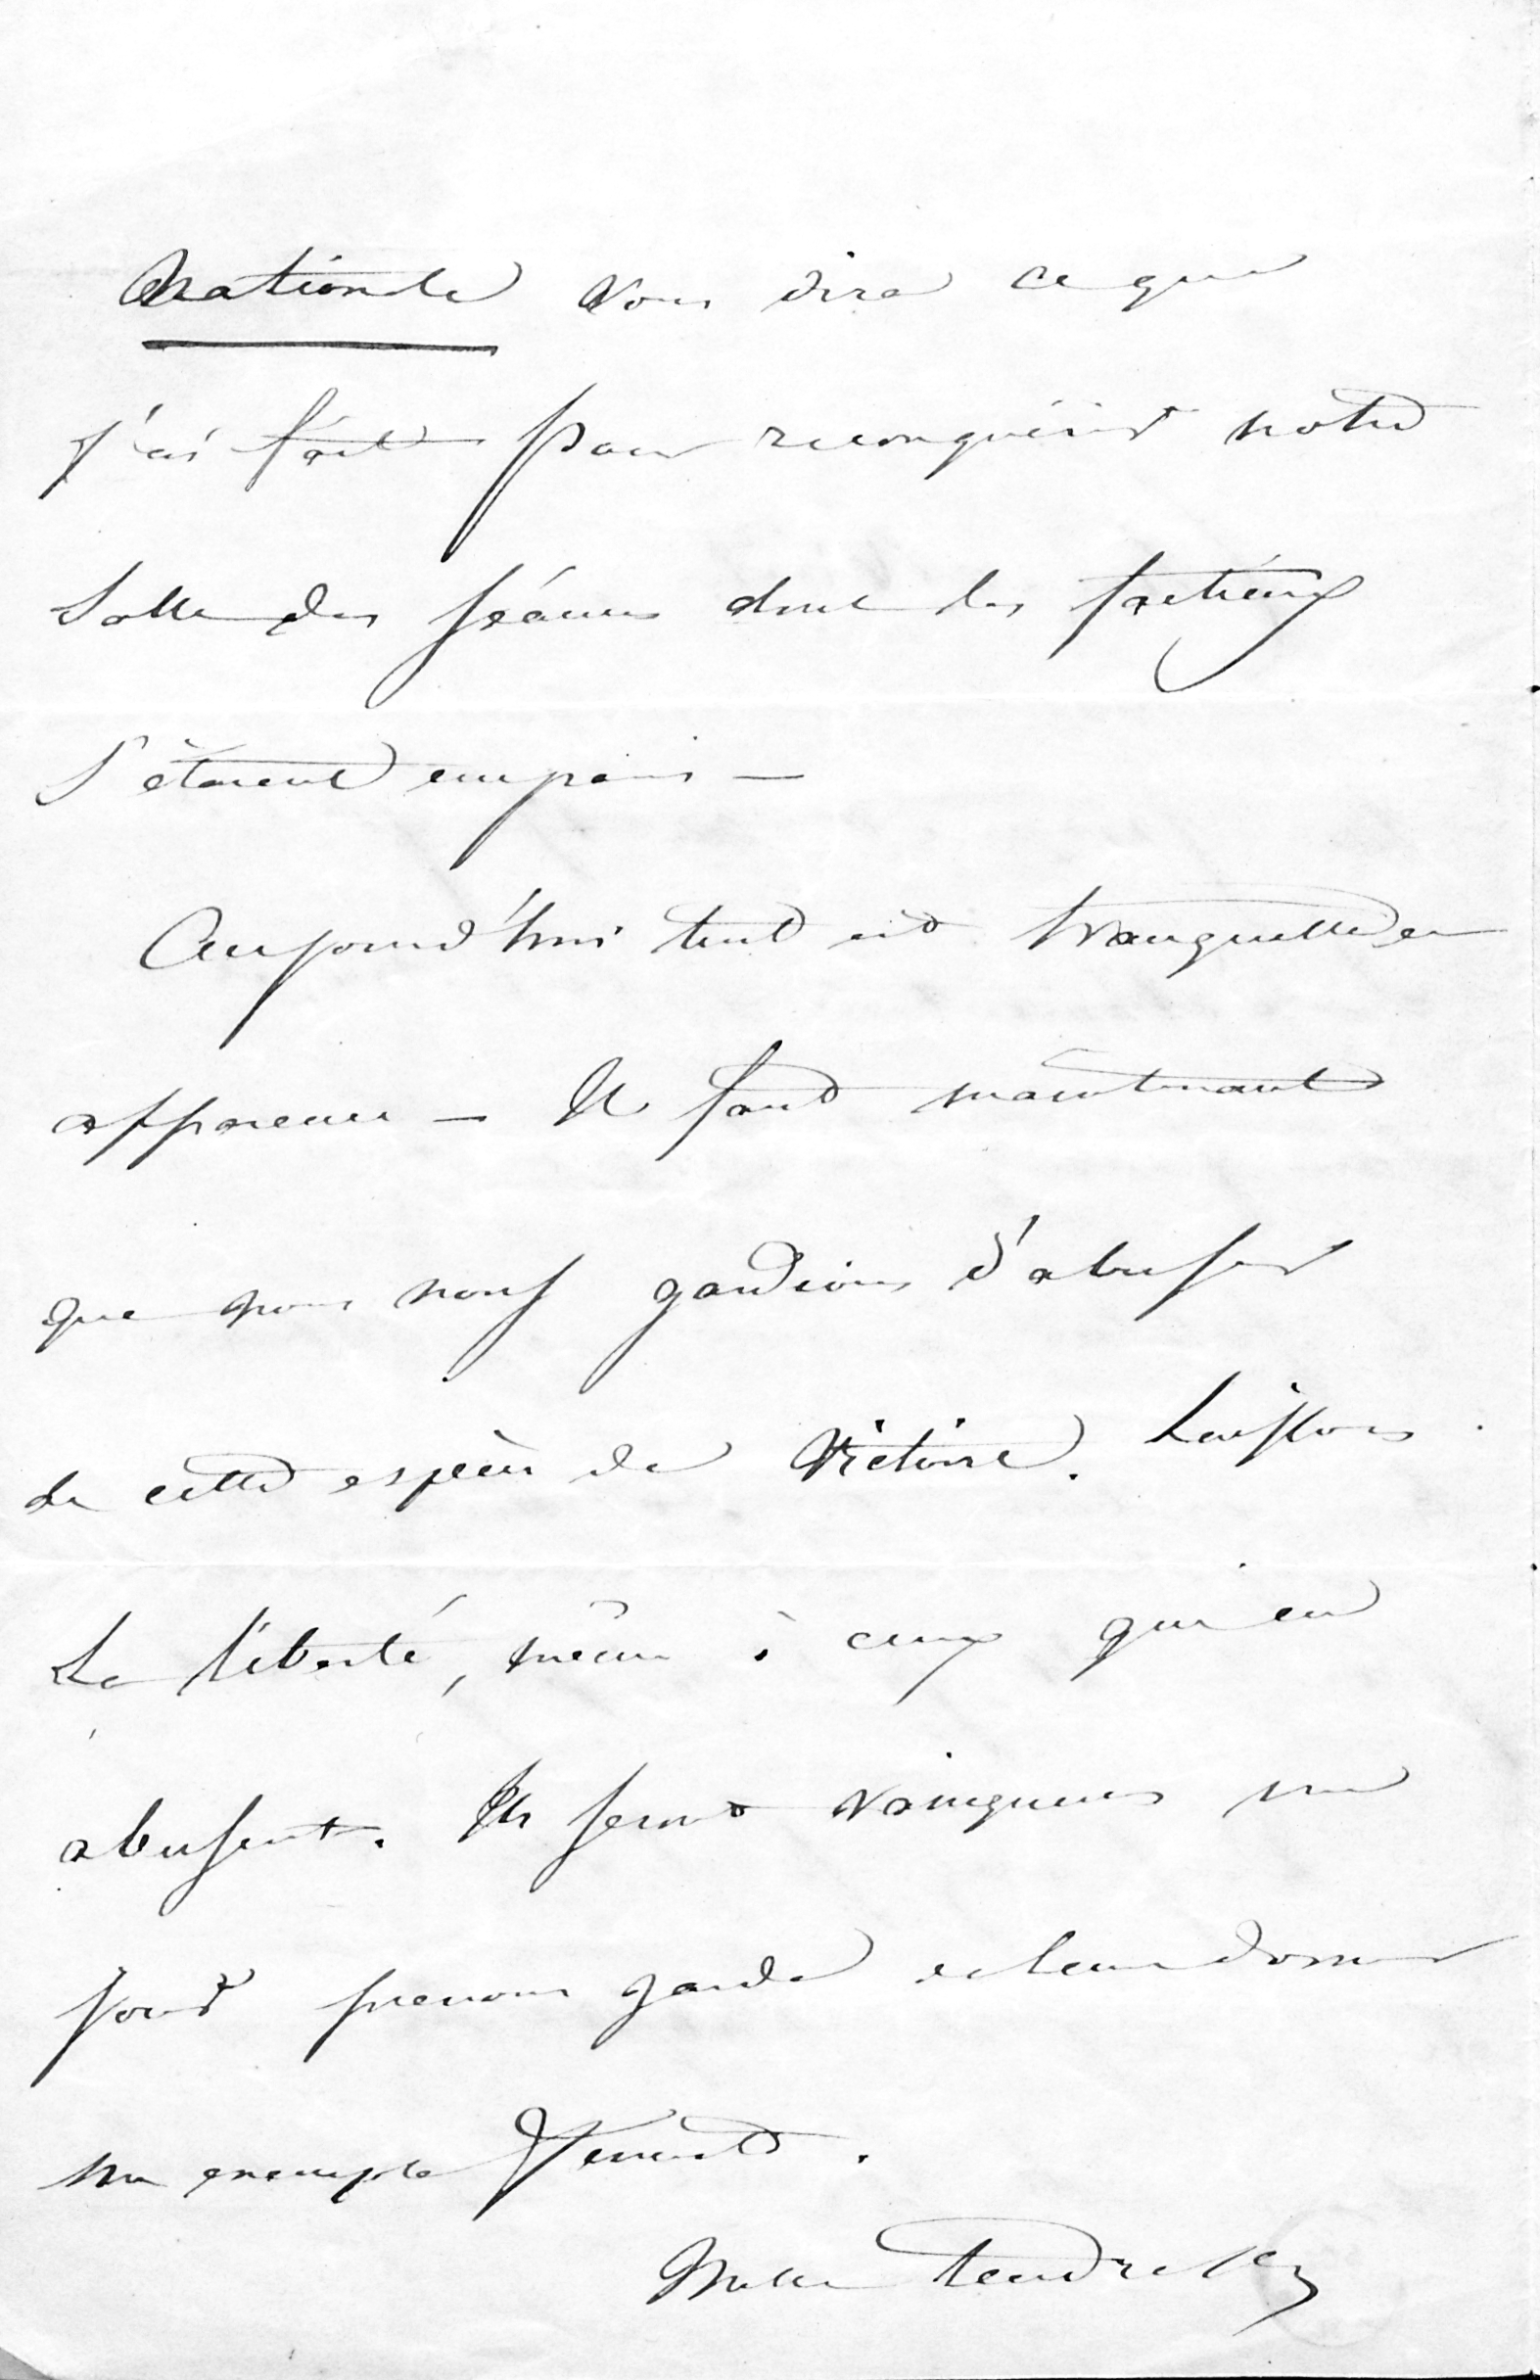 Nationale vous dira ce que
j'ai fait pour reconquérir notre
Salle des séances dont les factieux
s'étaient emparés —
Aujourd'hui tout est tranquille en
apparence — Il faut maintenant
que nous nous gardions d'abuser
de cette espèce de victoire. Laissons
La liberté, même à ceux qui en
abusent. Ils seront vainqueurs un
jour prenons garde de leur donner
un exemple funeste.
Mille tendresses